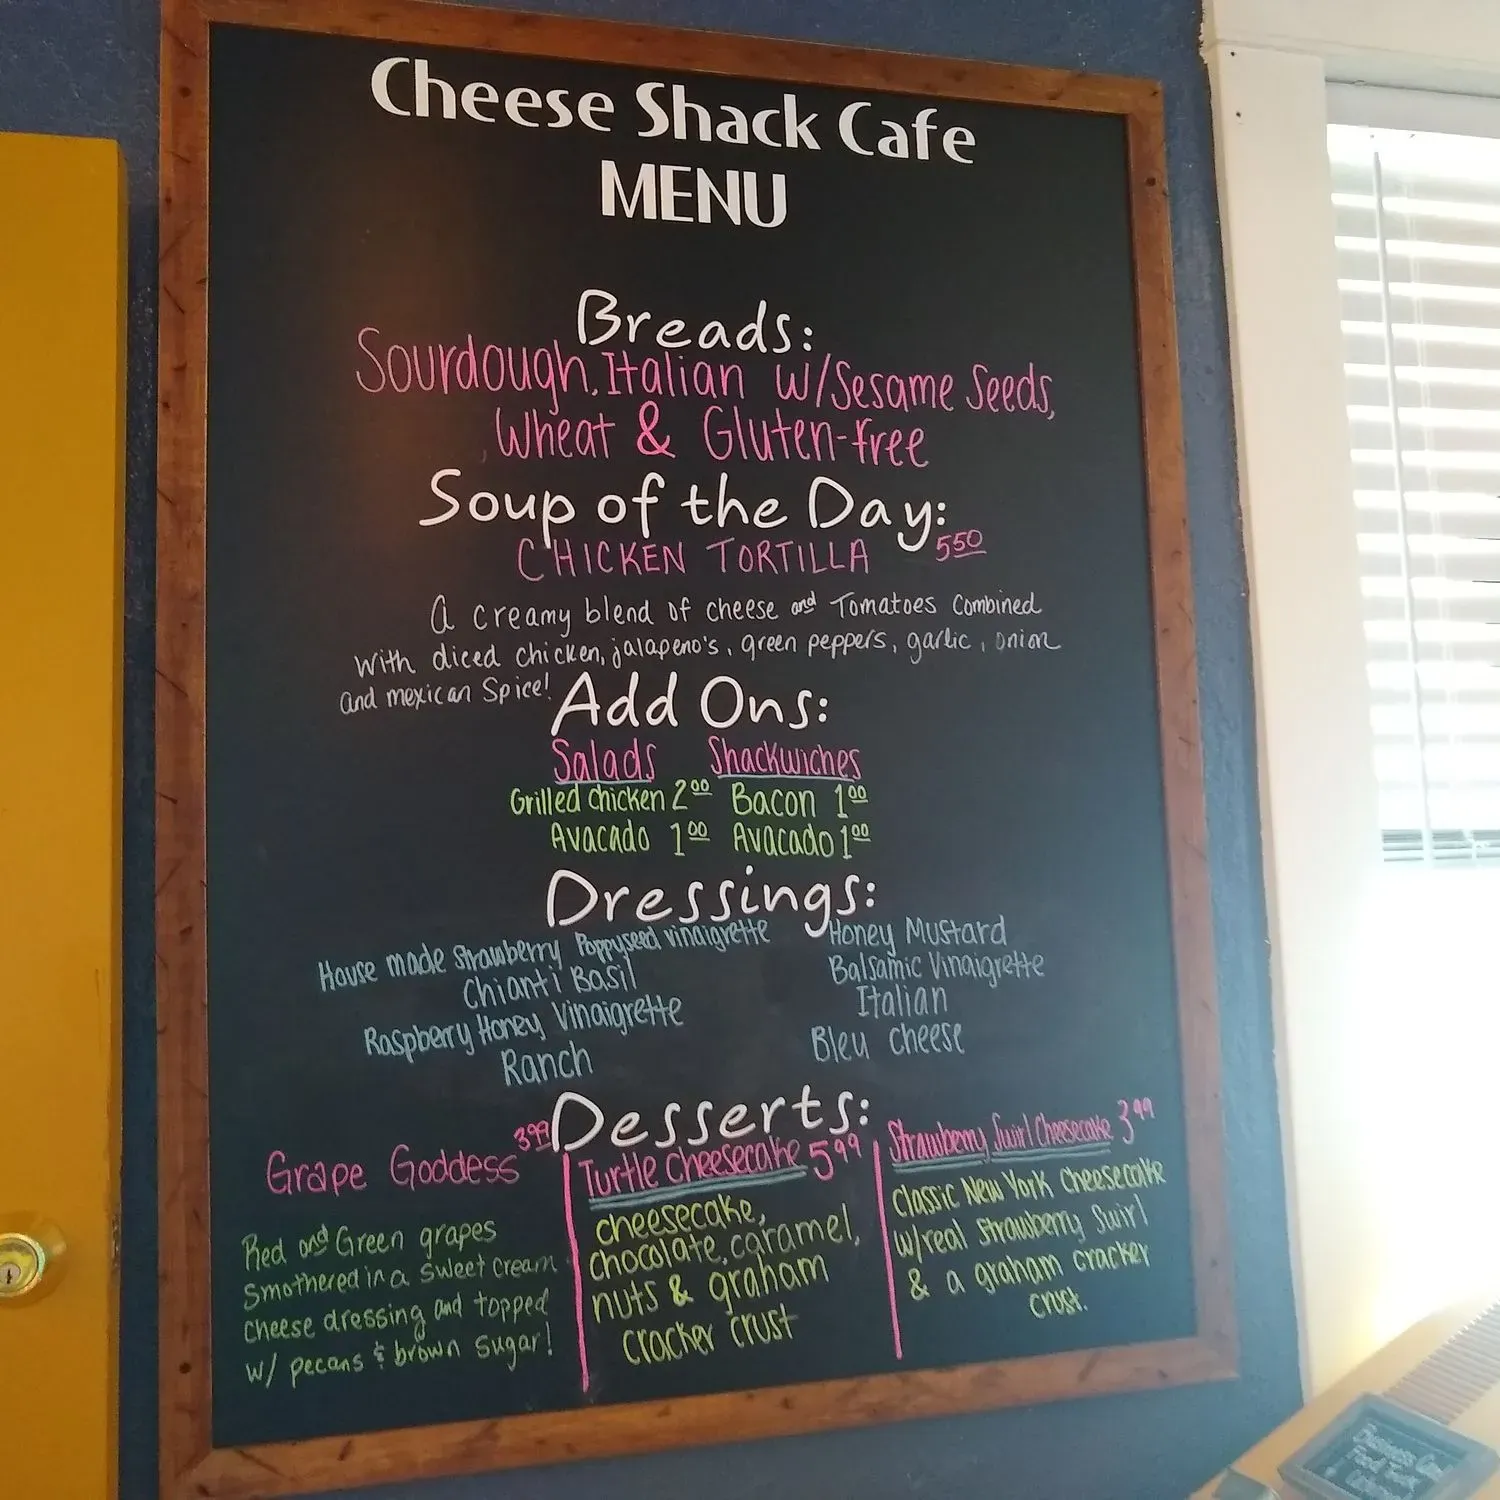 Cheese Shack Cafe
MENU
Breads:
Sourdough, Italian w/Sesame Seeds,
Wheat & Gluten-free
Soup of the Day:
CHICKEN TORTILLA 5.50
A creamy blend of cheese and Tomatoes combined
with diced chicken, jalapeno's, green peppers, garlic, onion
and mexican Spice!
Add Ons:
Salads Shackwiches
Grilled chicken 2.00 Bacon 1.00
Avacado 1.00 Avacado 1.00
Dressings:
House made Strawberry Poppyseed vinaigrette
Chianti Basil
Raspberry Honey Vinaigrette
Ranch
Honey Mustard
Balsamic Vinaigrette
Italian
Bleu cheese
Desserts:
Grape Goddess 3.99
Red and Green grapes
Smothered in a sweet cream
cheese dressing and topped
w/ pecans & brown sugar!
Turtle Cheesecake 5.99
cheesecake,
chocolate, caramel,
nuts & graham
cracker crust
Strawberry Swirl Cheesecake 3.99
Classic New York cheesecake
w/real Strawberry Swirl
& a graham cracker
crust.